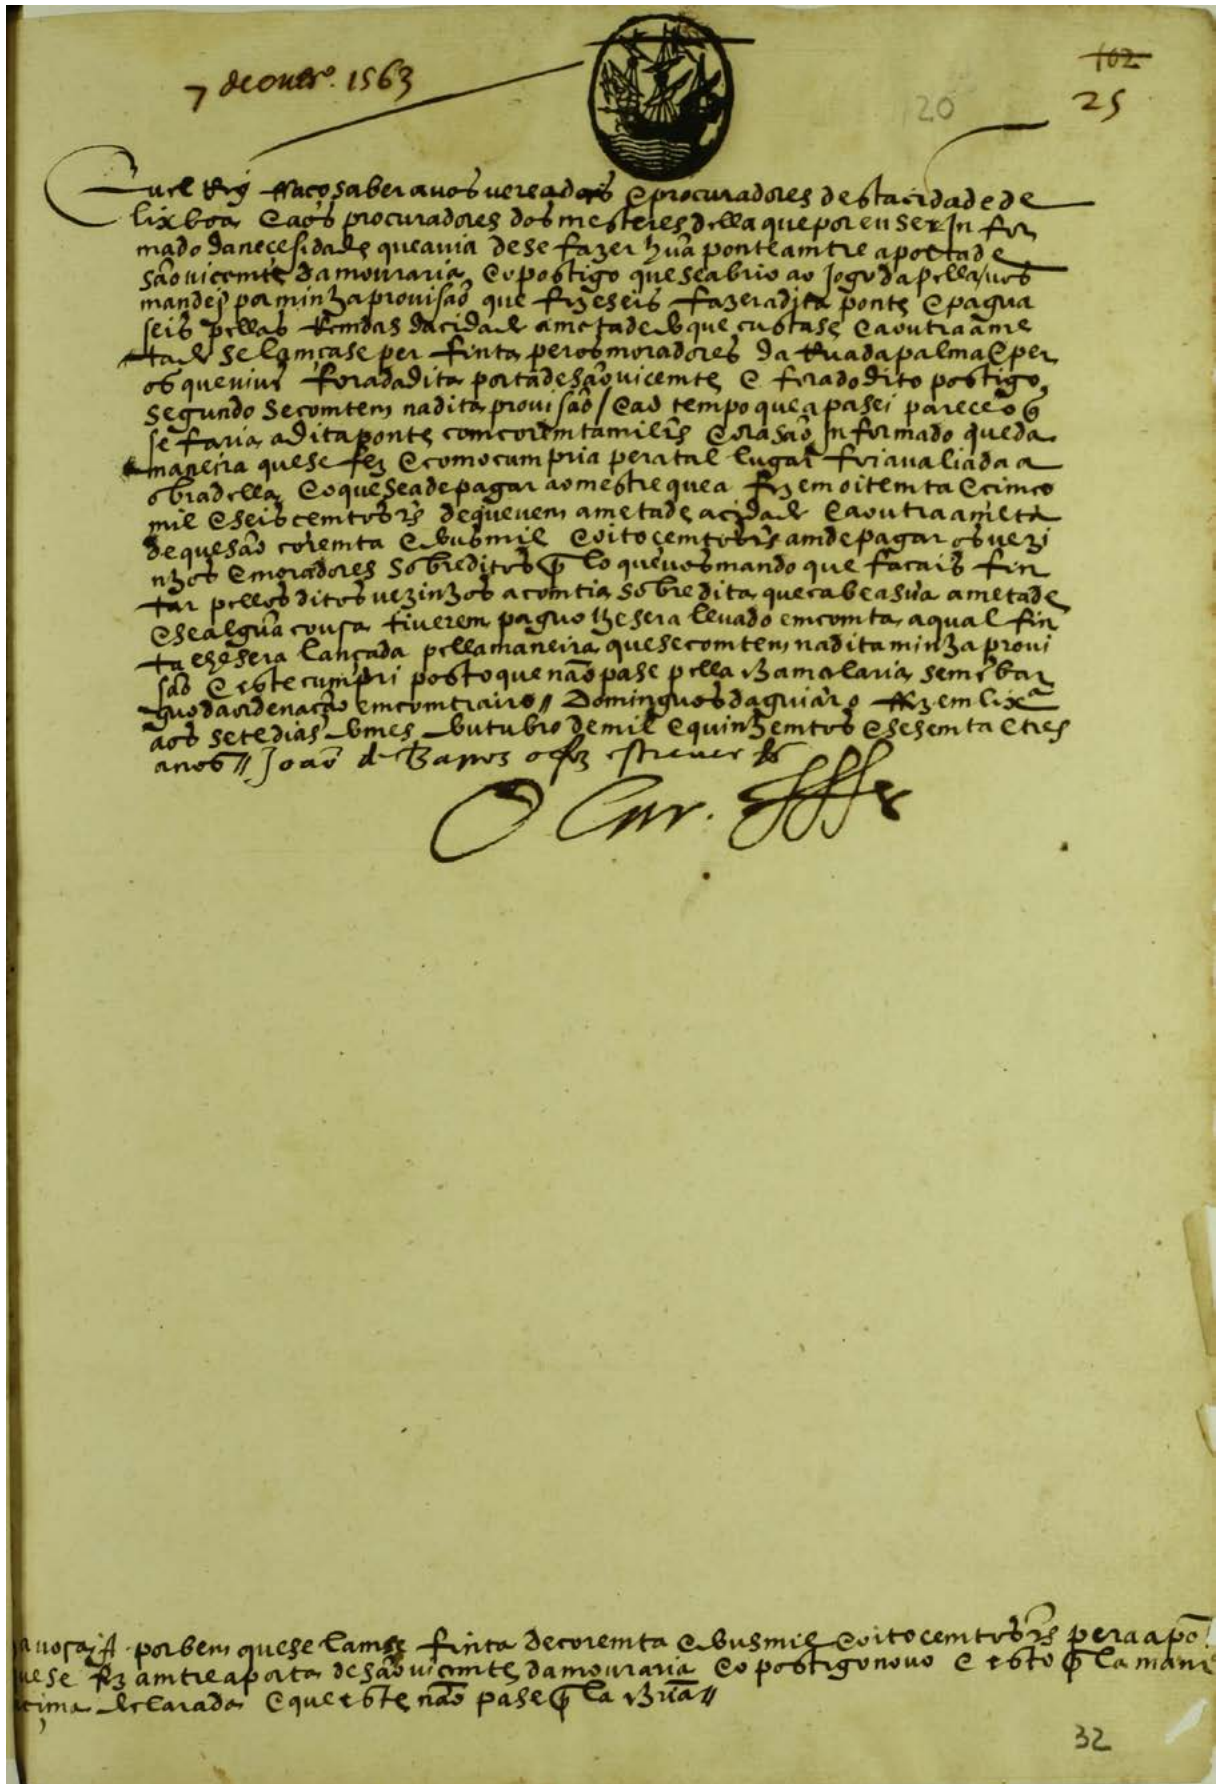 7 de outr.º 1563
102
20
25
Eu el Rey ffaço saber a vos vereadores e procuradores desta cidade de
lixboa e aos procuradores dos mesteres della que por eu ser Infor
mado da neçesidade que avia de se fazer hũa ponte amtre a porta de
são vicemte da mouraria e o postigo que se abrio ao Jogo da pella / vos
mandej por minha provisão que fizeseis fazer a dita ponte e pagua
seis pellas Remdas da cidade ametade do que custase e a outra ame
tade se lamçase per finta per os moradores da Rua da palma e per
os que vivẽ fora da dita porta de são vicemte e fora do dito postigo
segundo se comtem na dita provisão / e ao tempo que a pasei pareceo q̃
se faria a dita ponte com coremta mil rs̃ e ora são Informado que da
maneira que se fez e como cumpria pera tal lugar foi avaliada a
obra della e o que se a de pagar ao mestre que a fez em oitemta e cimco
mil e seis cemtos rs̃ de que vem ametade a cidade e a outra ameta
de que são coremta e dous mil e oito cemtos rs̃ am de pagar os vezi
nhos e moradores sobreditos p̃lo que vos mando que façais fin
tar pellos ditos vezinhos a comtia sobredita que cabe a sua ametade
e se algũa cousa tiverem paguo lhe sera levado em comta a qual fin
ta se sera lançada pella maneira que se comtem na dita minha provi
são e este cumpri posto que não pase pella chamcelaria sem ẽbar
guo da ordenação em comtrairo // Dominguos daguiar o ffez em lixª
aos sete dias do mes doutubro de mil e quinhemtos e sesemta e tres
anos // João de Barros o fez escrever
O Car. Iffte
a vosa A. por bem que se lamçe finta de coremta e dous mil e oito cemtos rs̃ pera a põ
que se fez amtre a porta de são vicemte da mouraria e o postigo novo e esto p̃la mane
acima declarada e que este não pase p̃la chrĩa //
32